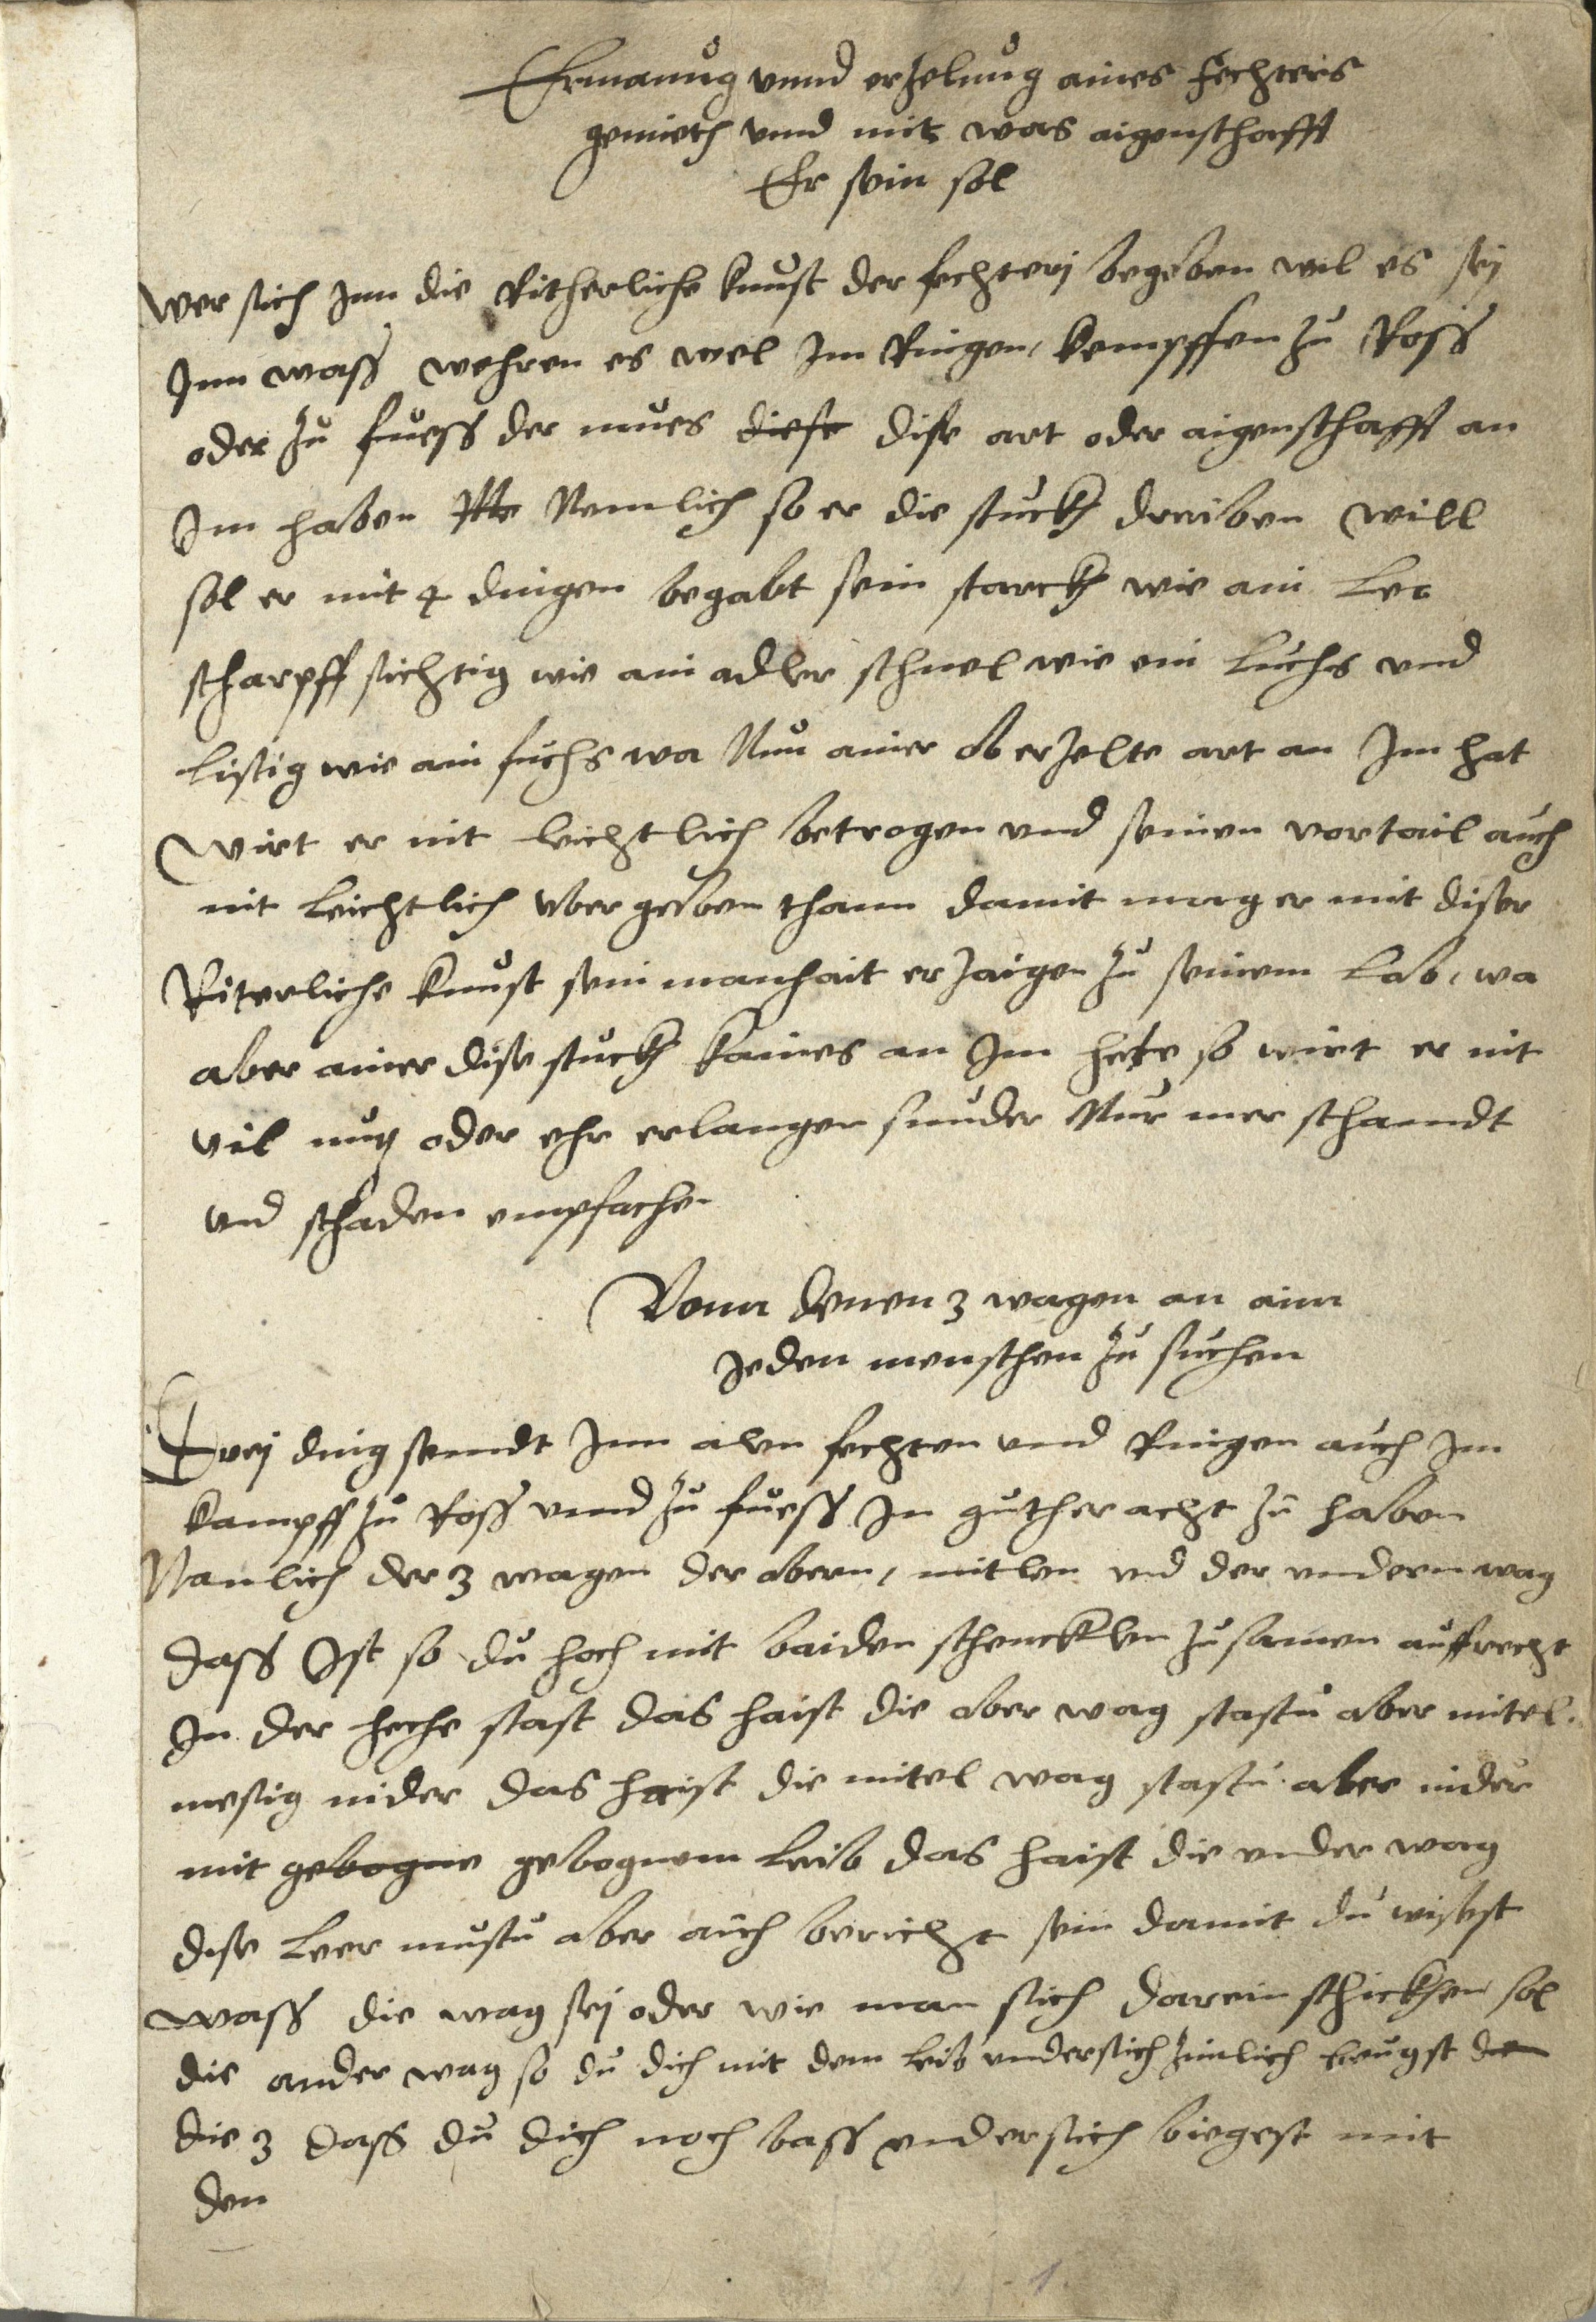 Ermanug vnnd erzelnug aines fechters
gemieth vnnd mit was aigenschafft
Er sein sol
Wer sich Inn die Ritherliche kunst der fechterj begeben wil es sej
Inn wass wehren es wel Im Ringen, kempffen zu Ross
oder zu fuess der mues diese dise art oder aigenschafft an
Im haben Nemlich so er die stuckh dreiben will
sol er mit 4 dingen begabt sein starckh wie ain Leo
scharpff sichtig wie ain adler schnel wie ein Luchs vnd
listig wie ain fuchs wa Nun ainer ob erzelte art an Im hat
wirt er nit leichtlich betrogen vnd seinen vortail auch
nit leichtlich vbergeben thann damit mag er mit diser
Riterliche kunst sein manhait erzaigen zu seinem Lob, wa
aber ainer dise stuckh kaines an Im hete so wirt er nit
vil nutz oder ehr erlangen sunder Nur mer schandt
vnd schaden empfachen
Vonn denen 3 wagen an aim
Jeden menschen zu suchen
Drej ding sendt Inn alen fechten vnnd Ringen auch Im
kampff zu Ross vnnd zu fuess In guther acht zu haben
Namlich der 3 wagen der obern, mitlen vnd der vndern wag
Dass Ist so du hoch mit baiden schencklen zusamen auffrecht
In der heche stast das haist die ober wag stastu aber mitel
mesig nider das haist die mitel wag stastu aber nider
mit gebogne gebognem Leib das haist die vnder wag
dise Leer mustu aber auch bericht sein damit du wissest
wass die wag sej oder wie man sich darein schickhen sol
die ander wag so du dich mit dem leib vndersich zimlich beugst die
die 3 dass du dich noch bass vndersich biegest mit
den
1